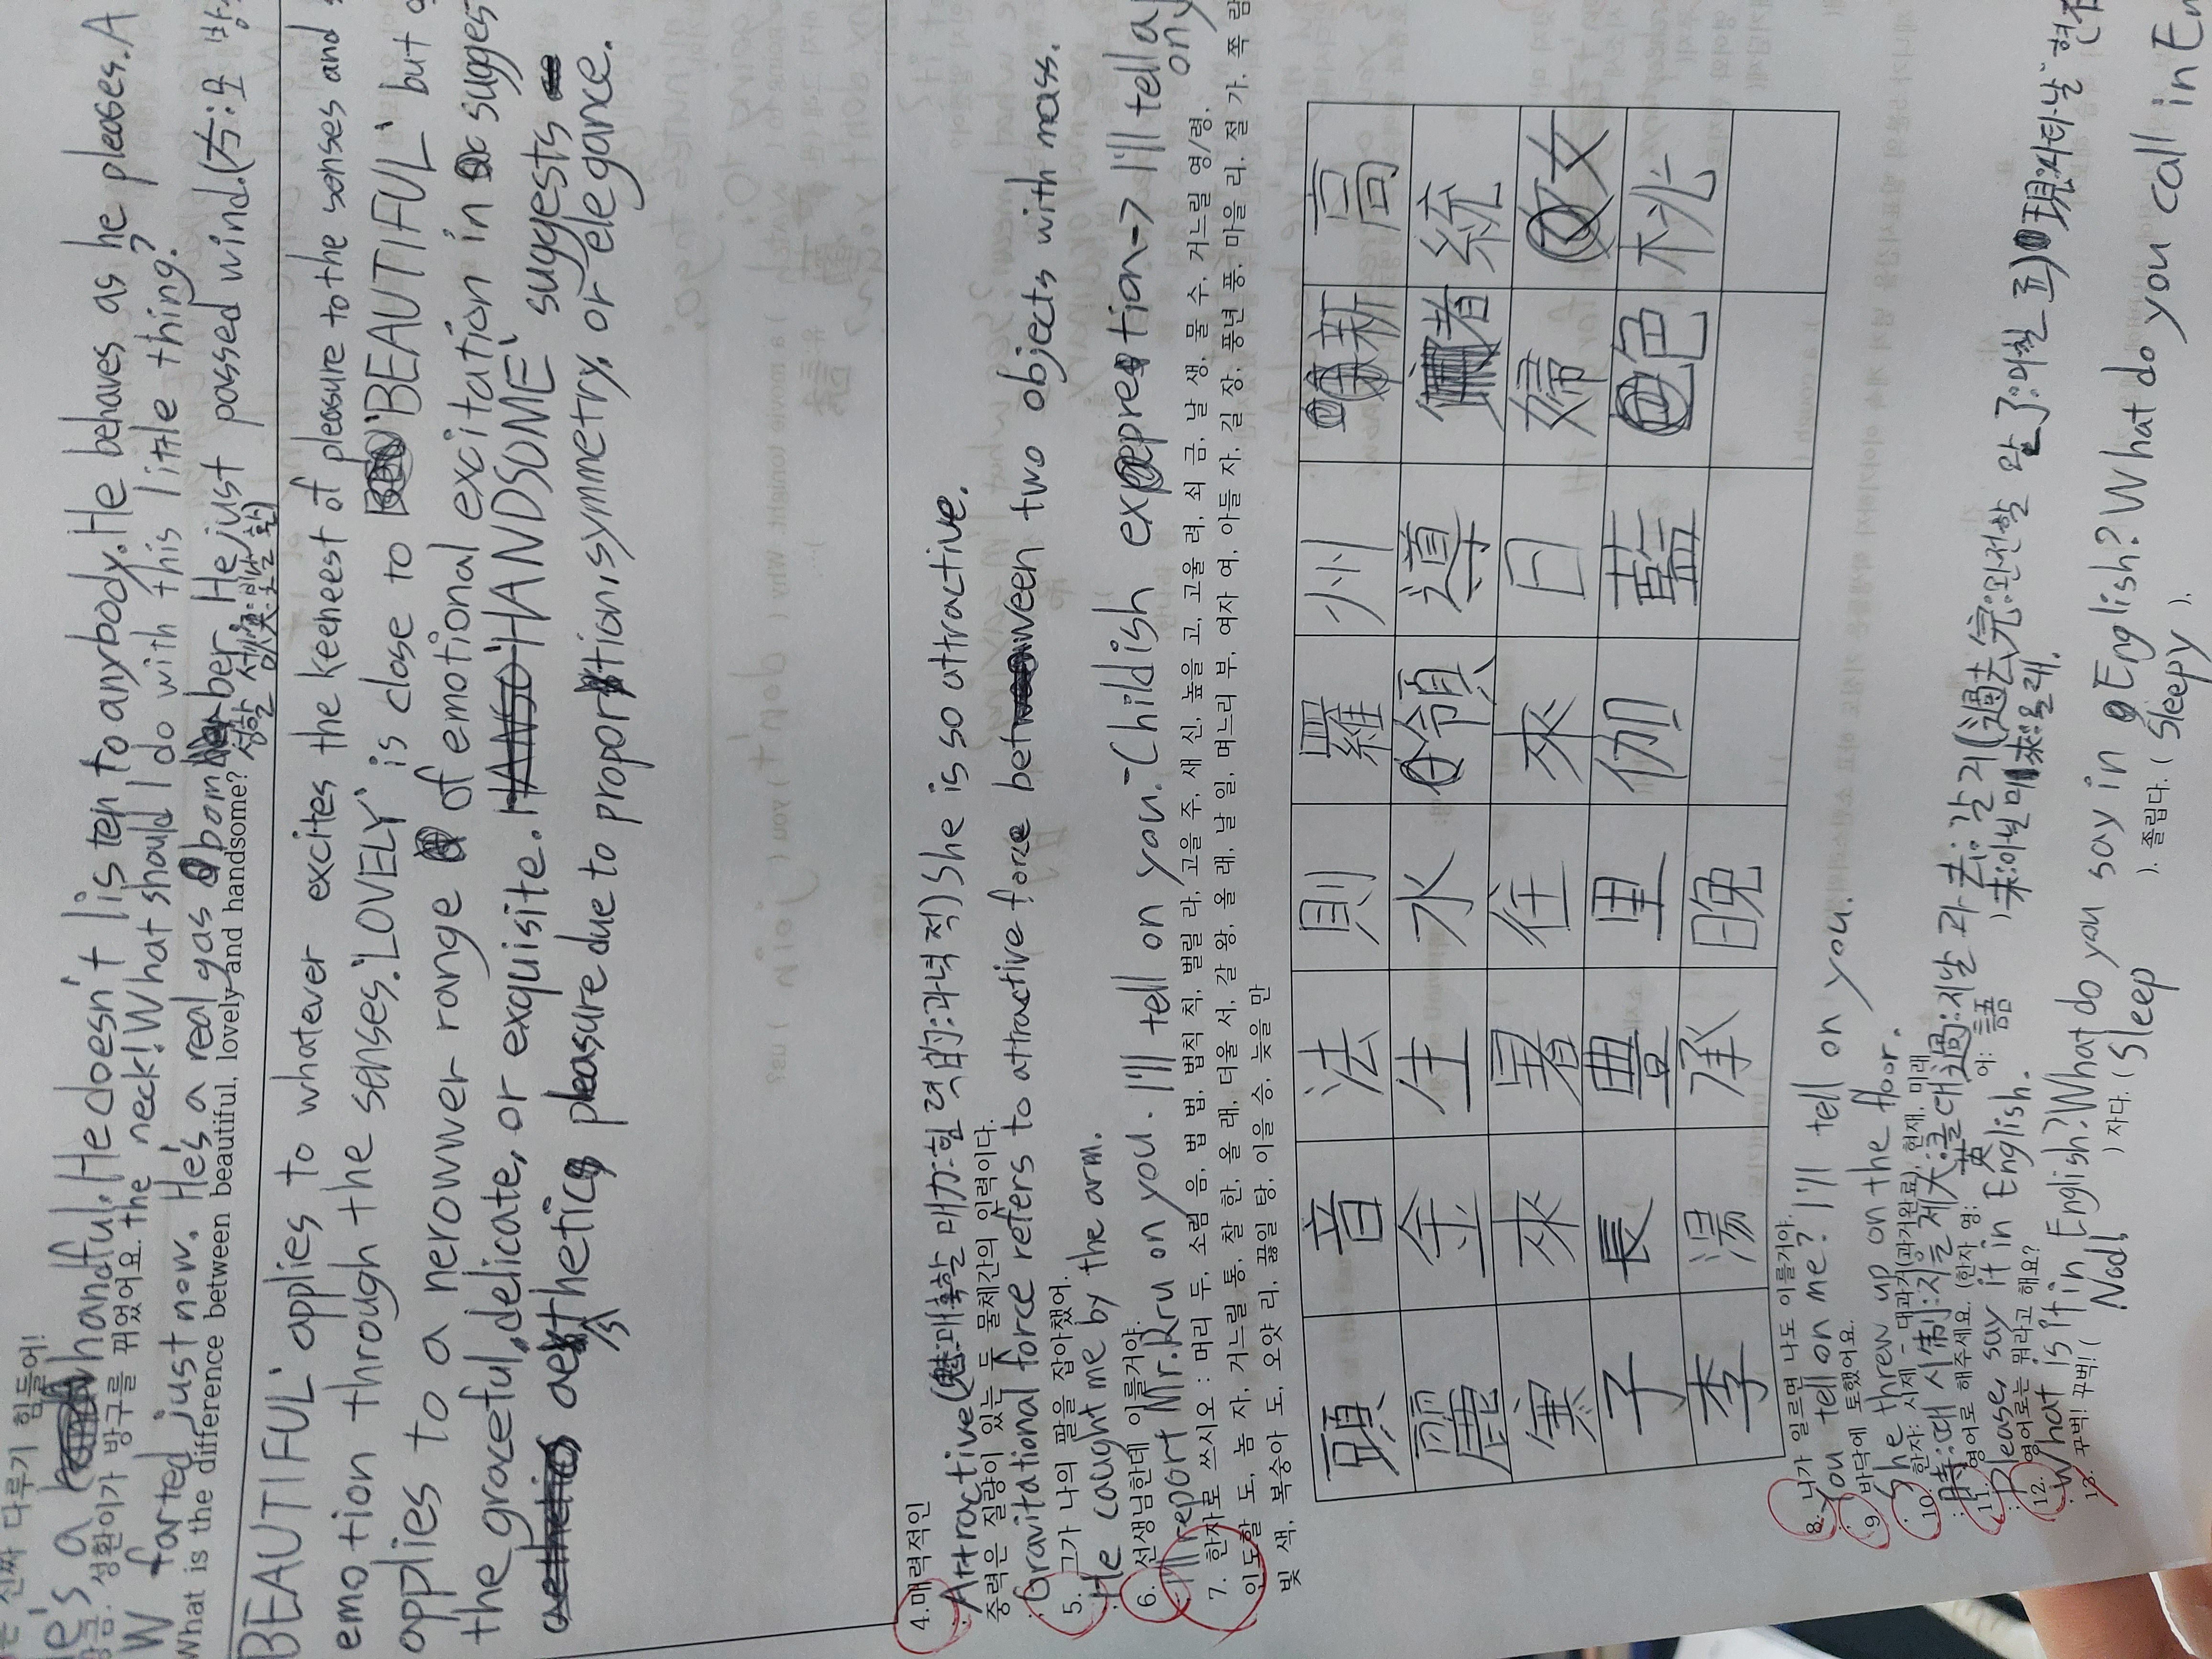 진짜 다루기 힘들어!
He's a handful. He doesn't listen to anybody. He behaves as he pleases. A
성환이가 방구를 뀌었어요.
the neck! What should I do with this little thing?
W farted just now. He's a real gas bomber. He just passed wind. (方:모 방
What is the difference between beautiful, lovely and handsome?
BEAUTIFUL' applies to whatever excites the keeneest of pleasure to the senses and
emotion through the senses. 'LOVELY' is close to 'BEAUTIFUL' but
applies to a nerowwer range of emotional excitation in sugges
the graceful, delicate, or exquisite. 'HANDSOME' suggests
aesthetics pleasure due to proportion, symmetry, or elegance.
4.매력적인
Attractive(魅:매혹할 매 力:힘 력 的:과녁 적) She is so attractive.
중력은 질량이 있는 두 물체간의 인력이다.
Gravitational force refers to attractive force between two objects with mass.
5. 그가 나의 팔을 잡아챘어.
He caught me by the arm.
6. 선생님한데 이를거야.
I'll report Mr.Rru on you. I'll tell on you. - Childish expretion -> I'll tell a
on y
7. 한자로 쓰시오 : 머리 두, 소림 음, 법 법, 법칙 칙, 벌릴 라, 고을 주, 새 신, 높을 고, 고울 려, 쇠 금, 날 생, 물 수, 거느릴 영/령,
인도할 도, 놈 자, 거느릴 통, 찰 한, 올 래, 더울 서, 갈 왕, 올 래, 날 일, 며느리 부, 여자 여, 아들 자, 길 장, 풍년 풍, 마을 리, 절 가, 쪽 람
빛 색, 복숭아 도, 오얏 리, 끓일 탕, 이을 승, 늦을 만
頭 音 法 則 羅 州 新 高
麗 金 生 水 領 導 者 統
寒 來 暑 往 來 日 婦 女
子 長 豊 里 伽 藍 色 桃
李 湯 承 晩
8. 니가 일르면 나도 이를거야.
You tell on me? I'll tell on you.
9. 바닥에 토했어요.
She threw up on the floor.
10. 한자: 시제 - 대과거(과거완료), 현재, 미래
時:때 시 制:지을 제 大:클 대 過:지날 과 去:갈 거 (過去完:완전할 완 了:마칠 료) 現:나타날 현
未:아닐 미 來:올 래.
11. 영어로 해주세요. (한자 영: 英 어: 語 )
Please, say it in English.
12. 영어로는 뭐라고 해요?
What is it in English? What do you say in English? What do you call in En
13. 꾸벅! 꾸벅! ( Nod! ) 자다. ( Sleep ). 졸립다. ( Sleepy ).